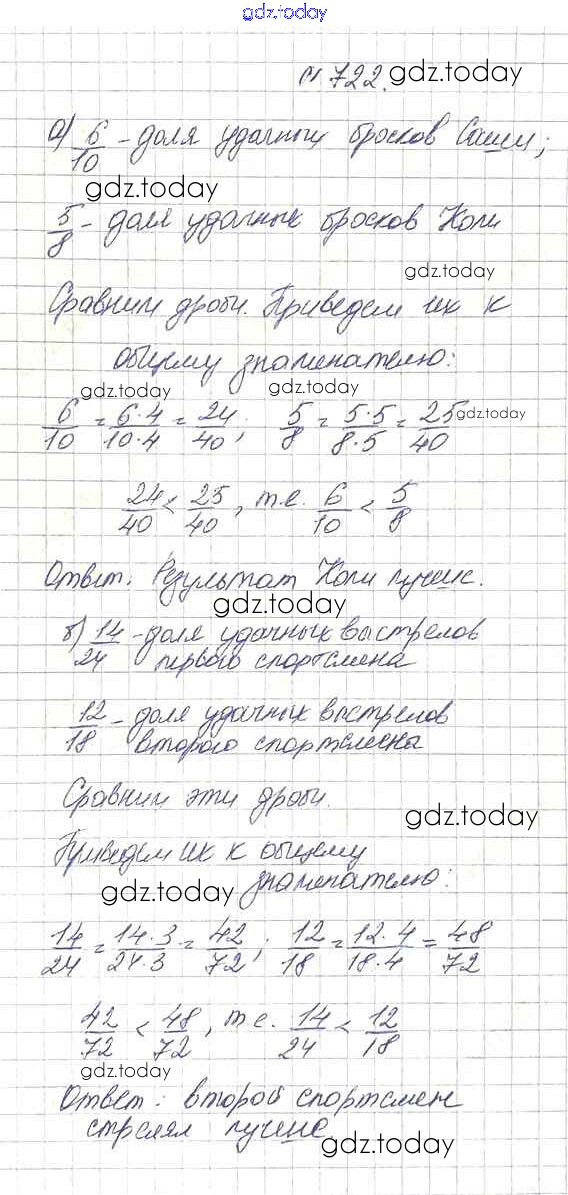 gdz.today
№ 722. gdz.today
а) 6/10 - доля удачных бросков Саши;
gdz.today
5/8 - доля удачных бросков Коли
gdz.today
Сравним дроби. Приведем их к
общему знаменателю:
gdz.today gdz.today
6/10 = 6·4/10·4 = 24/40; 5/8 = 5·5/8·5 = 25/40 gdz.today
24/40 < 25/40, т.е. 6/10 < 5/8
Ответ: Результат Коли лучше.
gdz.today
б) 14/24 - доля удачных выстрелов
первого спортсмена
12/18 - доля удачных выстрелов
второго спортсмена
Сравним эти дроби.
gdz.today
Приведем их к общему
знаменателю:
gdz.today
14/24 = 14·3/24·3 = 42/72; 12/18 = 12·4/18·4 = 48/72
42/72 < 48/72, т.е. 14/24 < 12/18
gdz.today
Ответ: второй спортсмен
стрелял лучше.
gdz.today